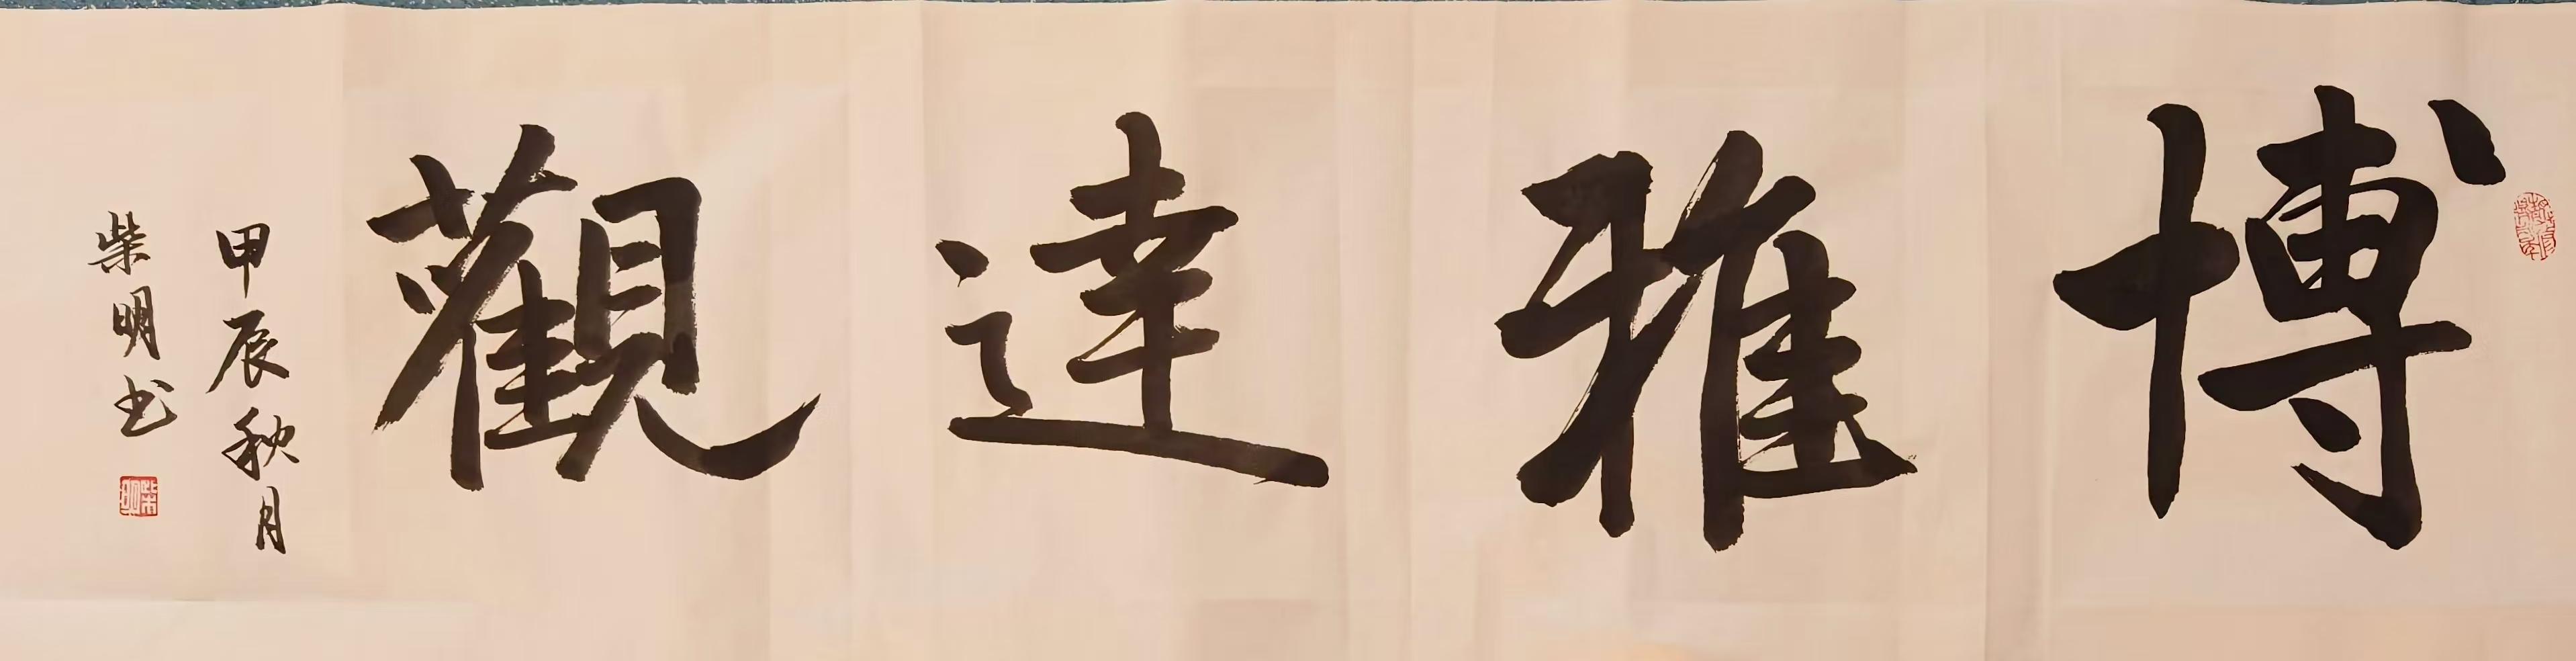 博雅達觀
甲辰秋月
柴明书
柴明